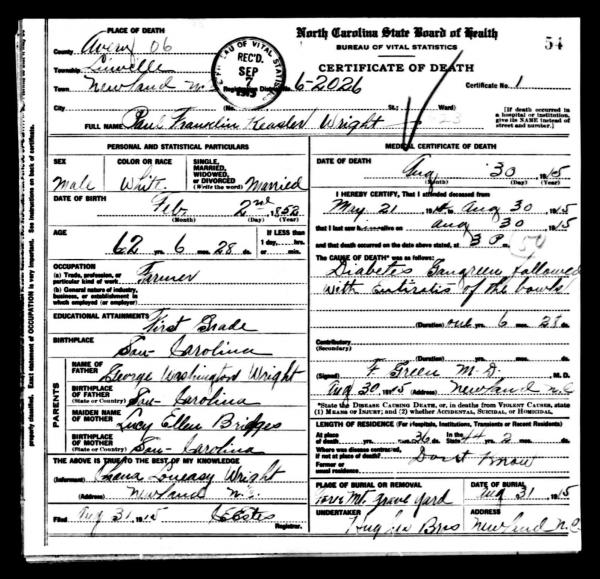 North Carolina State Board of Health
BUREAU OF VITAL STATISTICS
CERTIFICATE OF DEATH
54
PLACE OF DEATH
County Avery 06
Township Linville
Town Newland N.C.
BUREAU OF VITAL STATISTICS
REC'D.
SEP
7
1915
Registration District No. 6-2026
Certificate No. 1
City
St.;
Ward)
[If death occurred in a hospital or institution, give its NAME instead of street and number.]
FULL NAME Paul Franklin Keasler Wright
PERSONAL AND STATISTICAL PARTICULARS
SEX
Male
COLOR OR RACE
White
SINGLE, MARRIED, WIDOWED, or DIVORCED
(Write the word) Married
DATE OF BIRTH
Feb 2nd, 1853
(Month) (Day) (Year)
AGE
62 yrs. 6 mos. 28 ds.
If LESS than
1 day, hrs.
or min.
OCCUPATION
(a) Trade, profession, or particular kind of work
Farmer
(b) General nature of industry, business, or establishment in which employed (or employer)
EDUCATIONAL ATTAINMENTS First Grade
BIRTHPLACE
Sou- Carolina
PARENTS
NAME OF FATHER George Washington Wright
BIRTHPLACE OF FATHER
(State or Country) Sou- Carolina
MAIDEN NAME OF MOTHER Lucy Ellen Bridges
BIRTHPLACE OF MOTHER
(State or Country) Sou- Carolina
THE ABOVE IS TRUE TO THE BEST OF MY KNOWLEDGE
(Informant) Wright
(Address) Newland N.C.
Filed Aug 31, 1915
Registrar.
MEDICAL CERTIFICATE OF DEATH
DATE OF DEATH
Aug 30, 1915
(Month) (Day) (Year)
I HEREBY CERTIFY, That I attended deceased from
May 21 to Aug 30, 1915
that I last saw h alive on Aug 30, 1915
and that death occurred on the date above stated, at 3 P m.
50
The CAUSE OF DEATH* was as follows:
Diabetes Gangreen followed
with of the bowels
(Duration) one yrs. 6 mos. 28 ds.
Contributory
(Secondary)
(Duration) yrs. mos. ds.
(Signed) F. Green M.D. M. D.
Aug 30, 1915 (Address) Newland N.C.
*State the DISEASE CAUSING DEATH, or, in deaths from VIOLENT CAUSES, state (1) MEANS OF INJURY; and (2) whether ACCIDENTAL, SUICIDAL, or HOMICIDAL.
LENGTH OF RESIDENCE (For Hospitals, Institutions, Transients or Recent Residents)
At place of death 36 ds. In the State 44 yrs. 2 mos. ds.
Where was disease contracted, if not at place of death? Dont Know
Former or usual residence
PLACE OF BURIAL OR REMOVAL
Mt. grave yard
DATE OF BURIAL
Aug 31, 1915
UNDERTAKER
Hughes Bros
ADDRESS
Newland N.C.
properly classified. Exact statement of OCCUPATION is very important. See instructions on back of certificate.